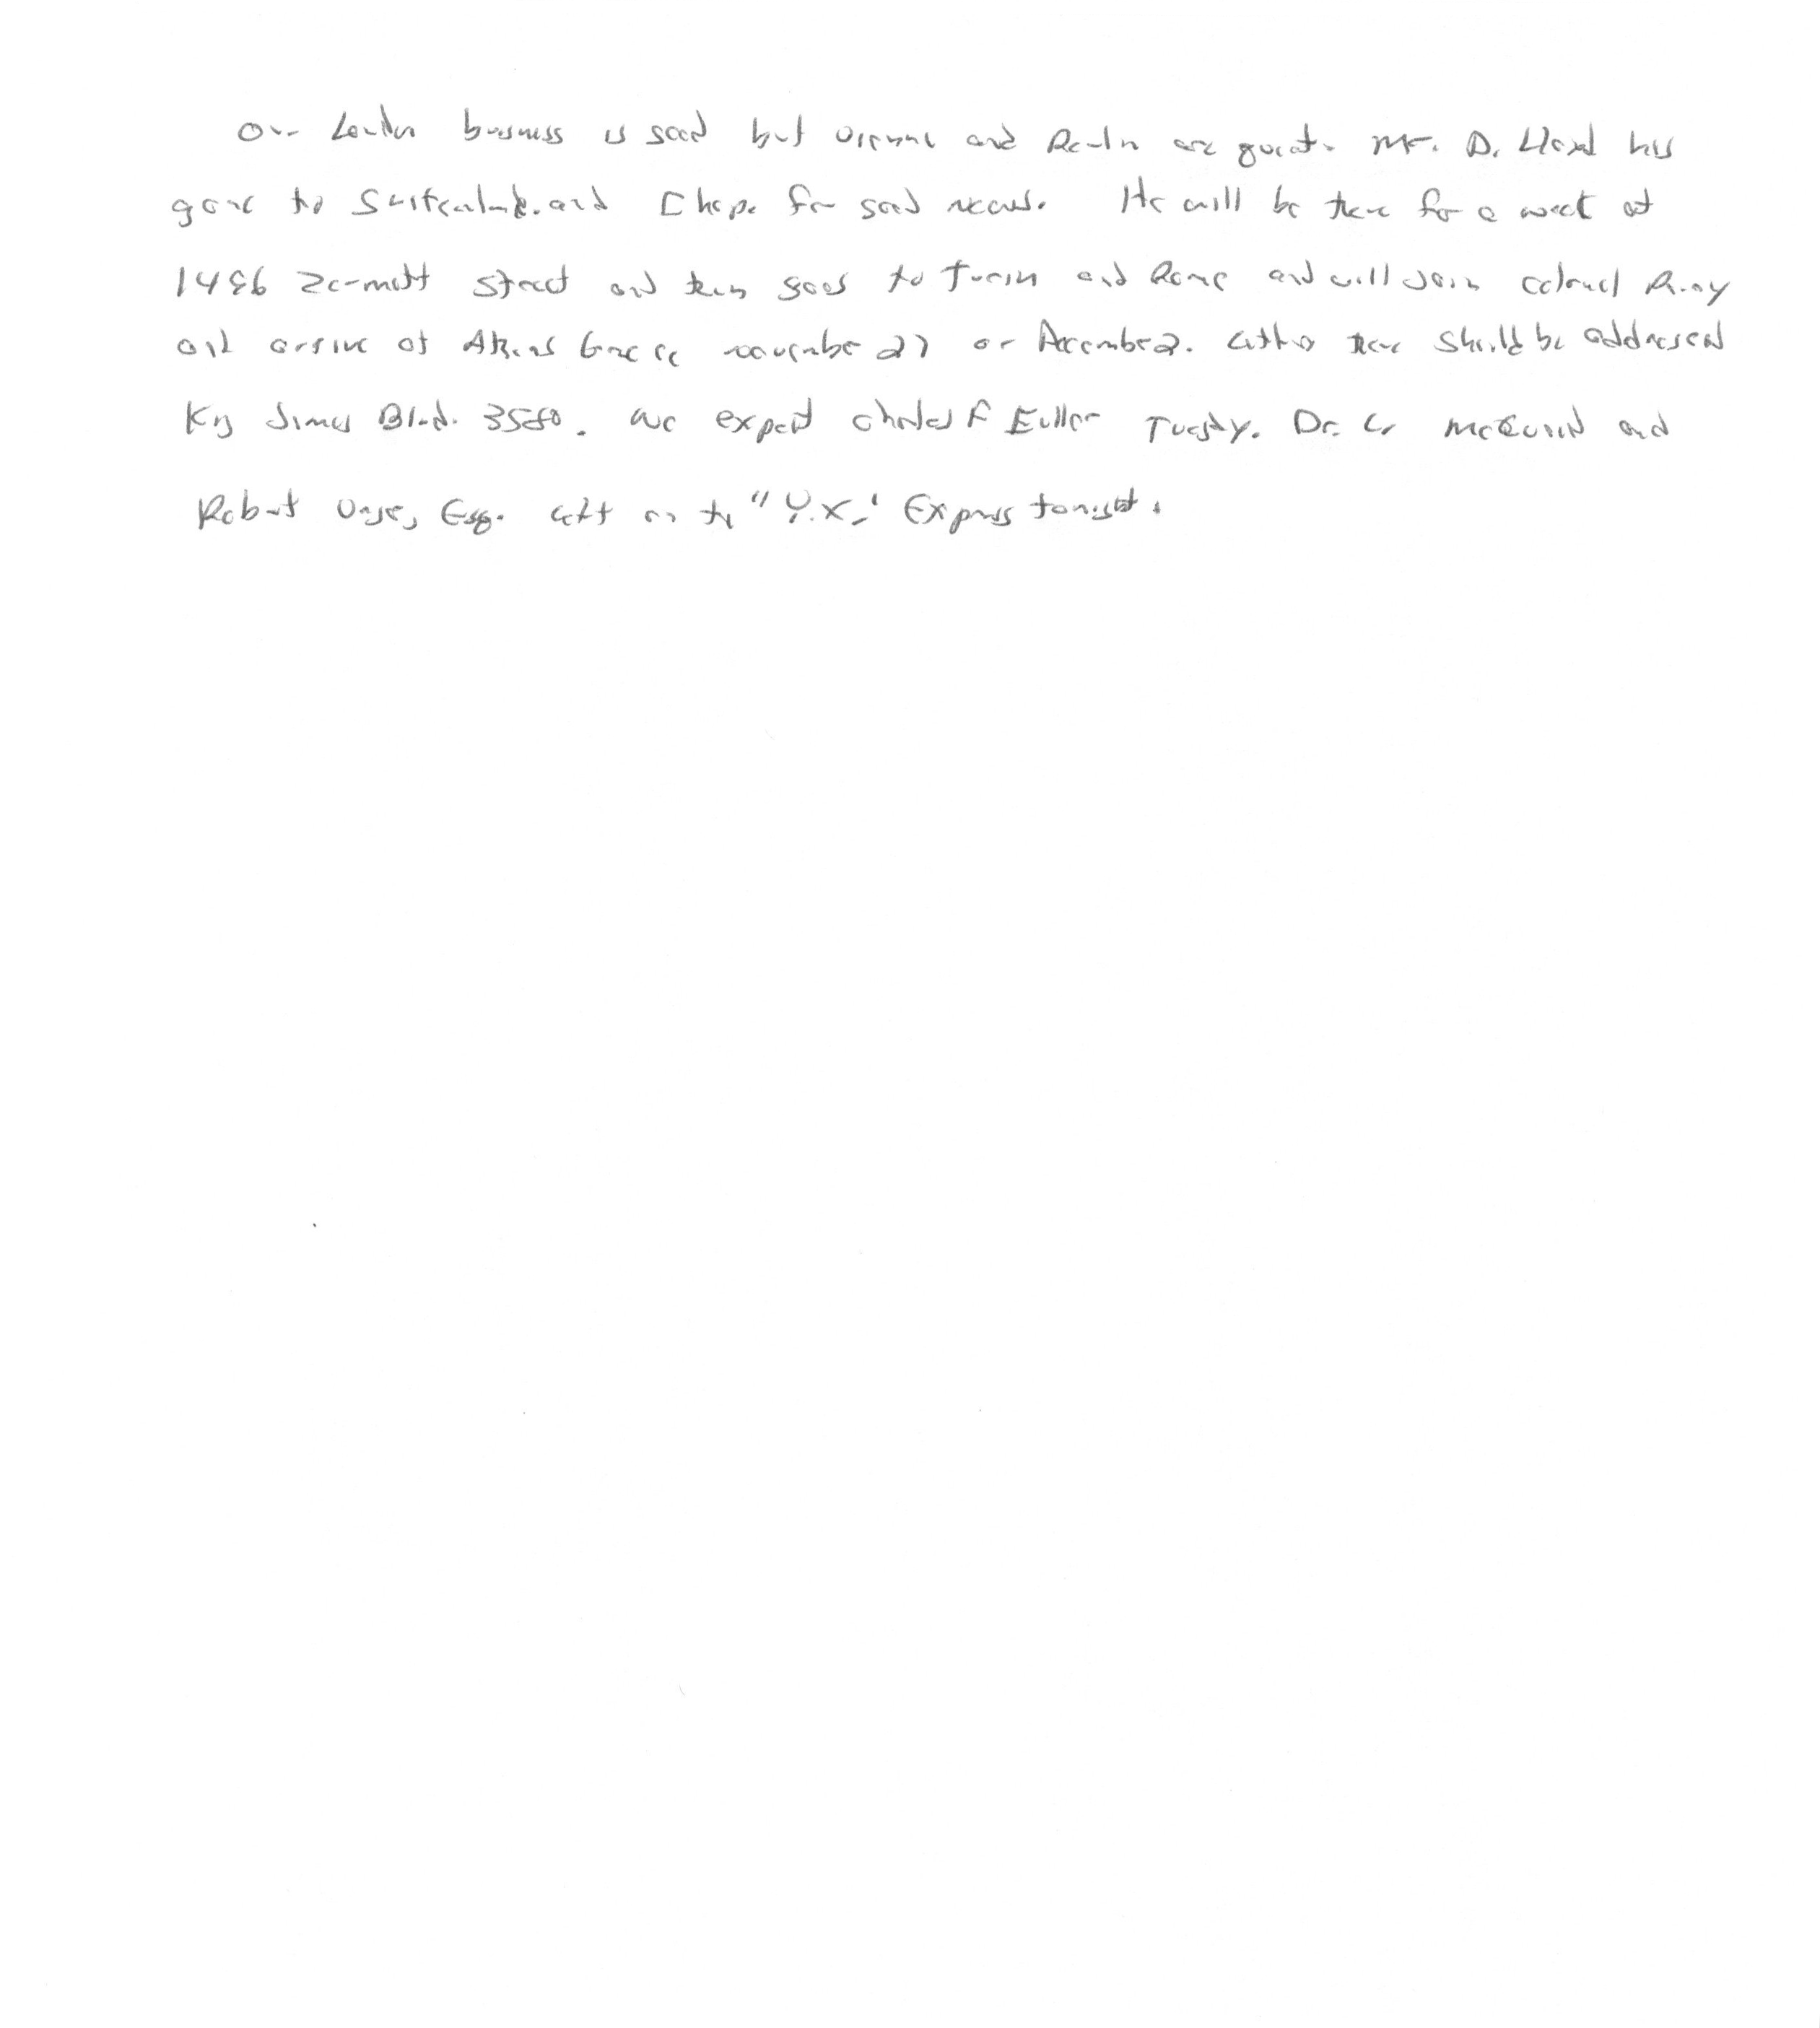 Our London business is good but Vienna and Berlin are quiet. Mr. D. Lloyd has
gone to Switzerland and I hope for good news. He will be there for a week at
1496 Zermott Street and then goes to Turin and Rome and will join Colonel Parry
and arrive at Athens Greece November 27 or December 2. Letters there should be addressed
King James Blvd. 3580. We expect Charles E Fuller Tuesday. Dr. L. McQuaid and
Robert Unger, Esq. left on the "Y.X." Express tonight.